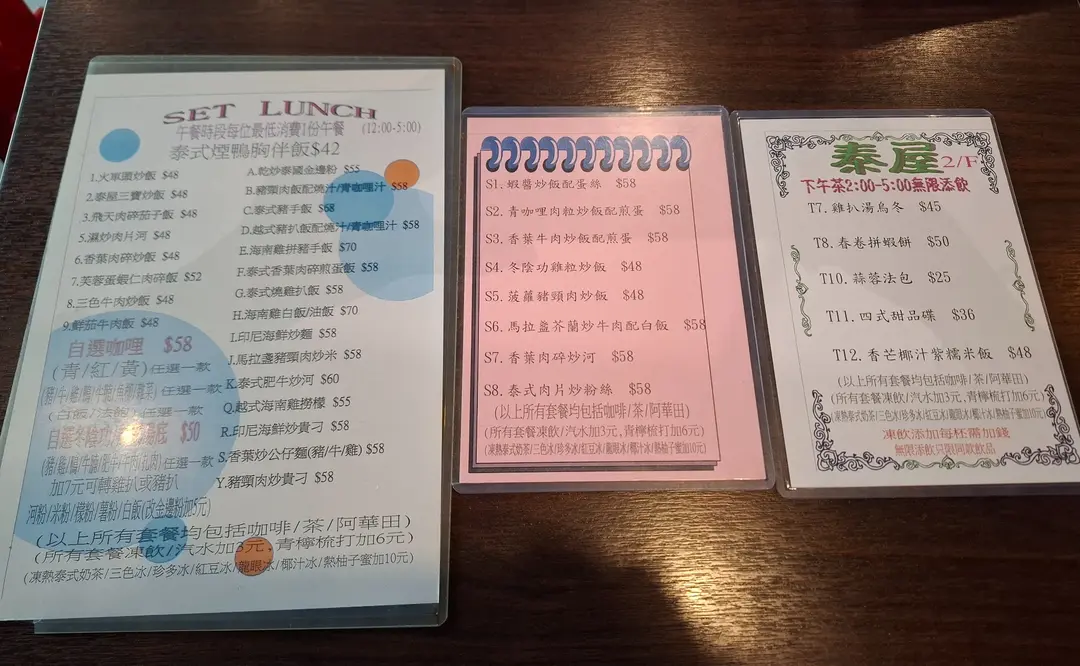 SET LUNCH
午餐時段每位最低消費1份午餐 (12:00-5:00)
泰式煙鴨胸伴飯$42
1.火單頭炒飯 $48
2.泰屋三寶炒飯 $48
3.飛天肉碎茄子飯 $48
5.濕炒肉片河 $48
6.香葉肉碎炒飯 $48
7.芙蓉蛋蝦仁肉碎飯 $52
8.三色牛肉炒飯 $48
9.鮮茄牛肉飯 $48
自選咖哩 $58
(青/紅/黃)任選一款
任選一款
(白飯/法飽)任選一款
自選冬陰功 湯底 $50
任選一款
加7元可轉雞扒或豬扒
河粉/米粉/檬粉/薯粉/白飯(改金邊粉加5元)
A.乾炒泰國金邊粉 $55
B.豬頸肉飯配燒汁/青咖哩汁 $58
C.泰式豬手飯 $68
D.越式豬扒飯配燒汁/青咖哩汁 $58
E.海南雞拼豬手飯 $70
F.泰式香葉肉碎煎蛋飯 $58
G.泰式燒雞扒飯 $58
H.海南雞白飯/油飯 $70
I.印尼海鮮炒麵 $58
J.馬拉盞豬頸肉炒米 $58
K.泰式肥牛炒河 $60
Q.越式海南雞撈檬 $55
R.印尼海鮮炒貴刁 $58
S.香葉炒公仔麵(豬/牛/雞) $58
Y.豬頸肉炒貴刁 $58
(以上所有套餐均包括咖啡/茶/阿華田)
(所有套餐凍飲/汽水加3元, 青檸梳打加6元)
(凍熱泰式奶茶/三色冰/珍多冰/紅豆冰/龍眼冰/椰汁冰/熱柚子蜜加10元)
S1. 蝦醬炒飯配蛋絲 $58
S2. 青咖哩肉粒炒飯配煎蛋 $58
S3. 香葉牛肉炒飯配煎蛋 $58
S4. 冬陰功雞粒炒飯 $48
S5. 菠蘿豬頸肉炒飯 $48
S6. 馬拉盞芥蘭炒牛肉配白飯 $58
S7. 香葉肉碎炒河 $58
S8. 泰式肉片炒粉絲 $58
(以上所有套餐均包括咖啡/茶/阿華田)
(所有套餐凍飲/汽水加3元, 青檸梳打加6元)
(凍熱泰式奶茶/三色冰/珍多冰/紅豆冰/龍眼冰/椰汁冰/熱柚子蜜加10元)
泰屋2/F
下午茶2:00-5:00無限添飲
T7. 雞扒湯烏冬 $45
T8. 春卷拼蝦餅 $50
T10. 蒜蓉法包 $25
T11. 四式甜品碟 $36
T12. 香芒椰汁紫糯米飯 $48
(以上所有套餐均包括咖啡/茶/阿華田)
(所有套餐凍飲/汽水加3元, 青檸梳打加6元)
(凍熱泰式奶茶/三色冰/珍多冰/紅豆冰/龍眼冰/椰汁冰/熱柚子蜜加10元)
凍飲添加每杯需加錢
無限添飲只限同款飲品